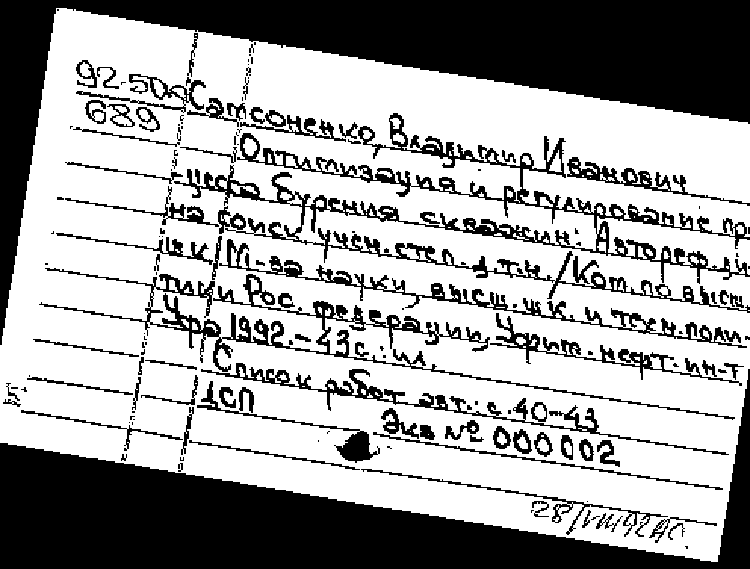 92-50а Самсоненко, Владимир Иванович
689
Оптимизация и регулирование про
-цесса бурения скважин: Автореф. дис
на соиск. учен. степ. д.т.н. / Ком. по высш.
шк. М-ва науки, высш. шк. и техн. поли-
тики Рос. федерации, Уфим. нефт. ин-т
Уфа 1992. - 43 с.: ил.
Список работ авт.: с. 40-43
ДСП
Экз № 000002
28/VIII92